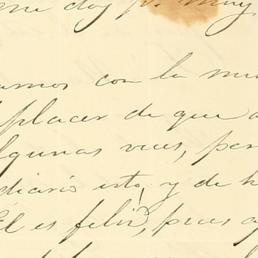 me doy p. muy
amos con la mu
placer de que a
lgunas veces, per
diario esto, y de h
Él es feliz, pues a